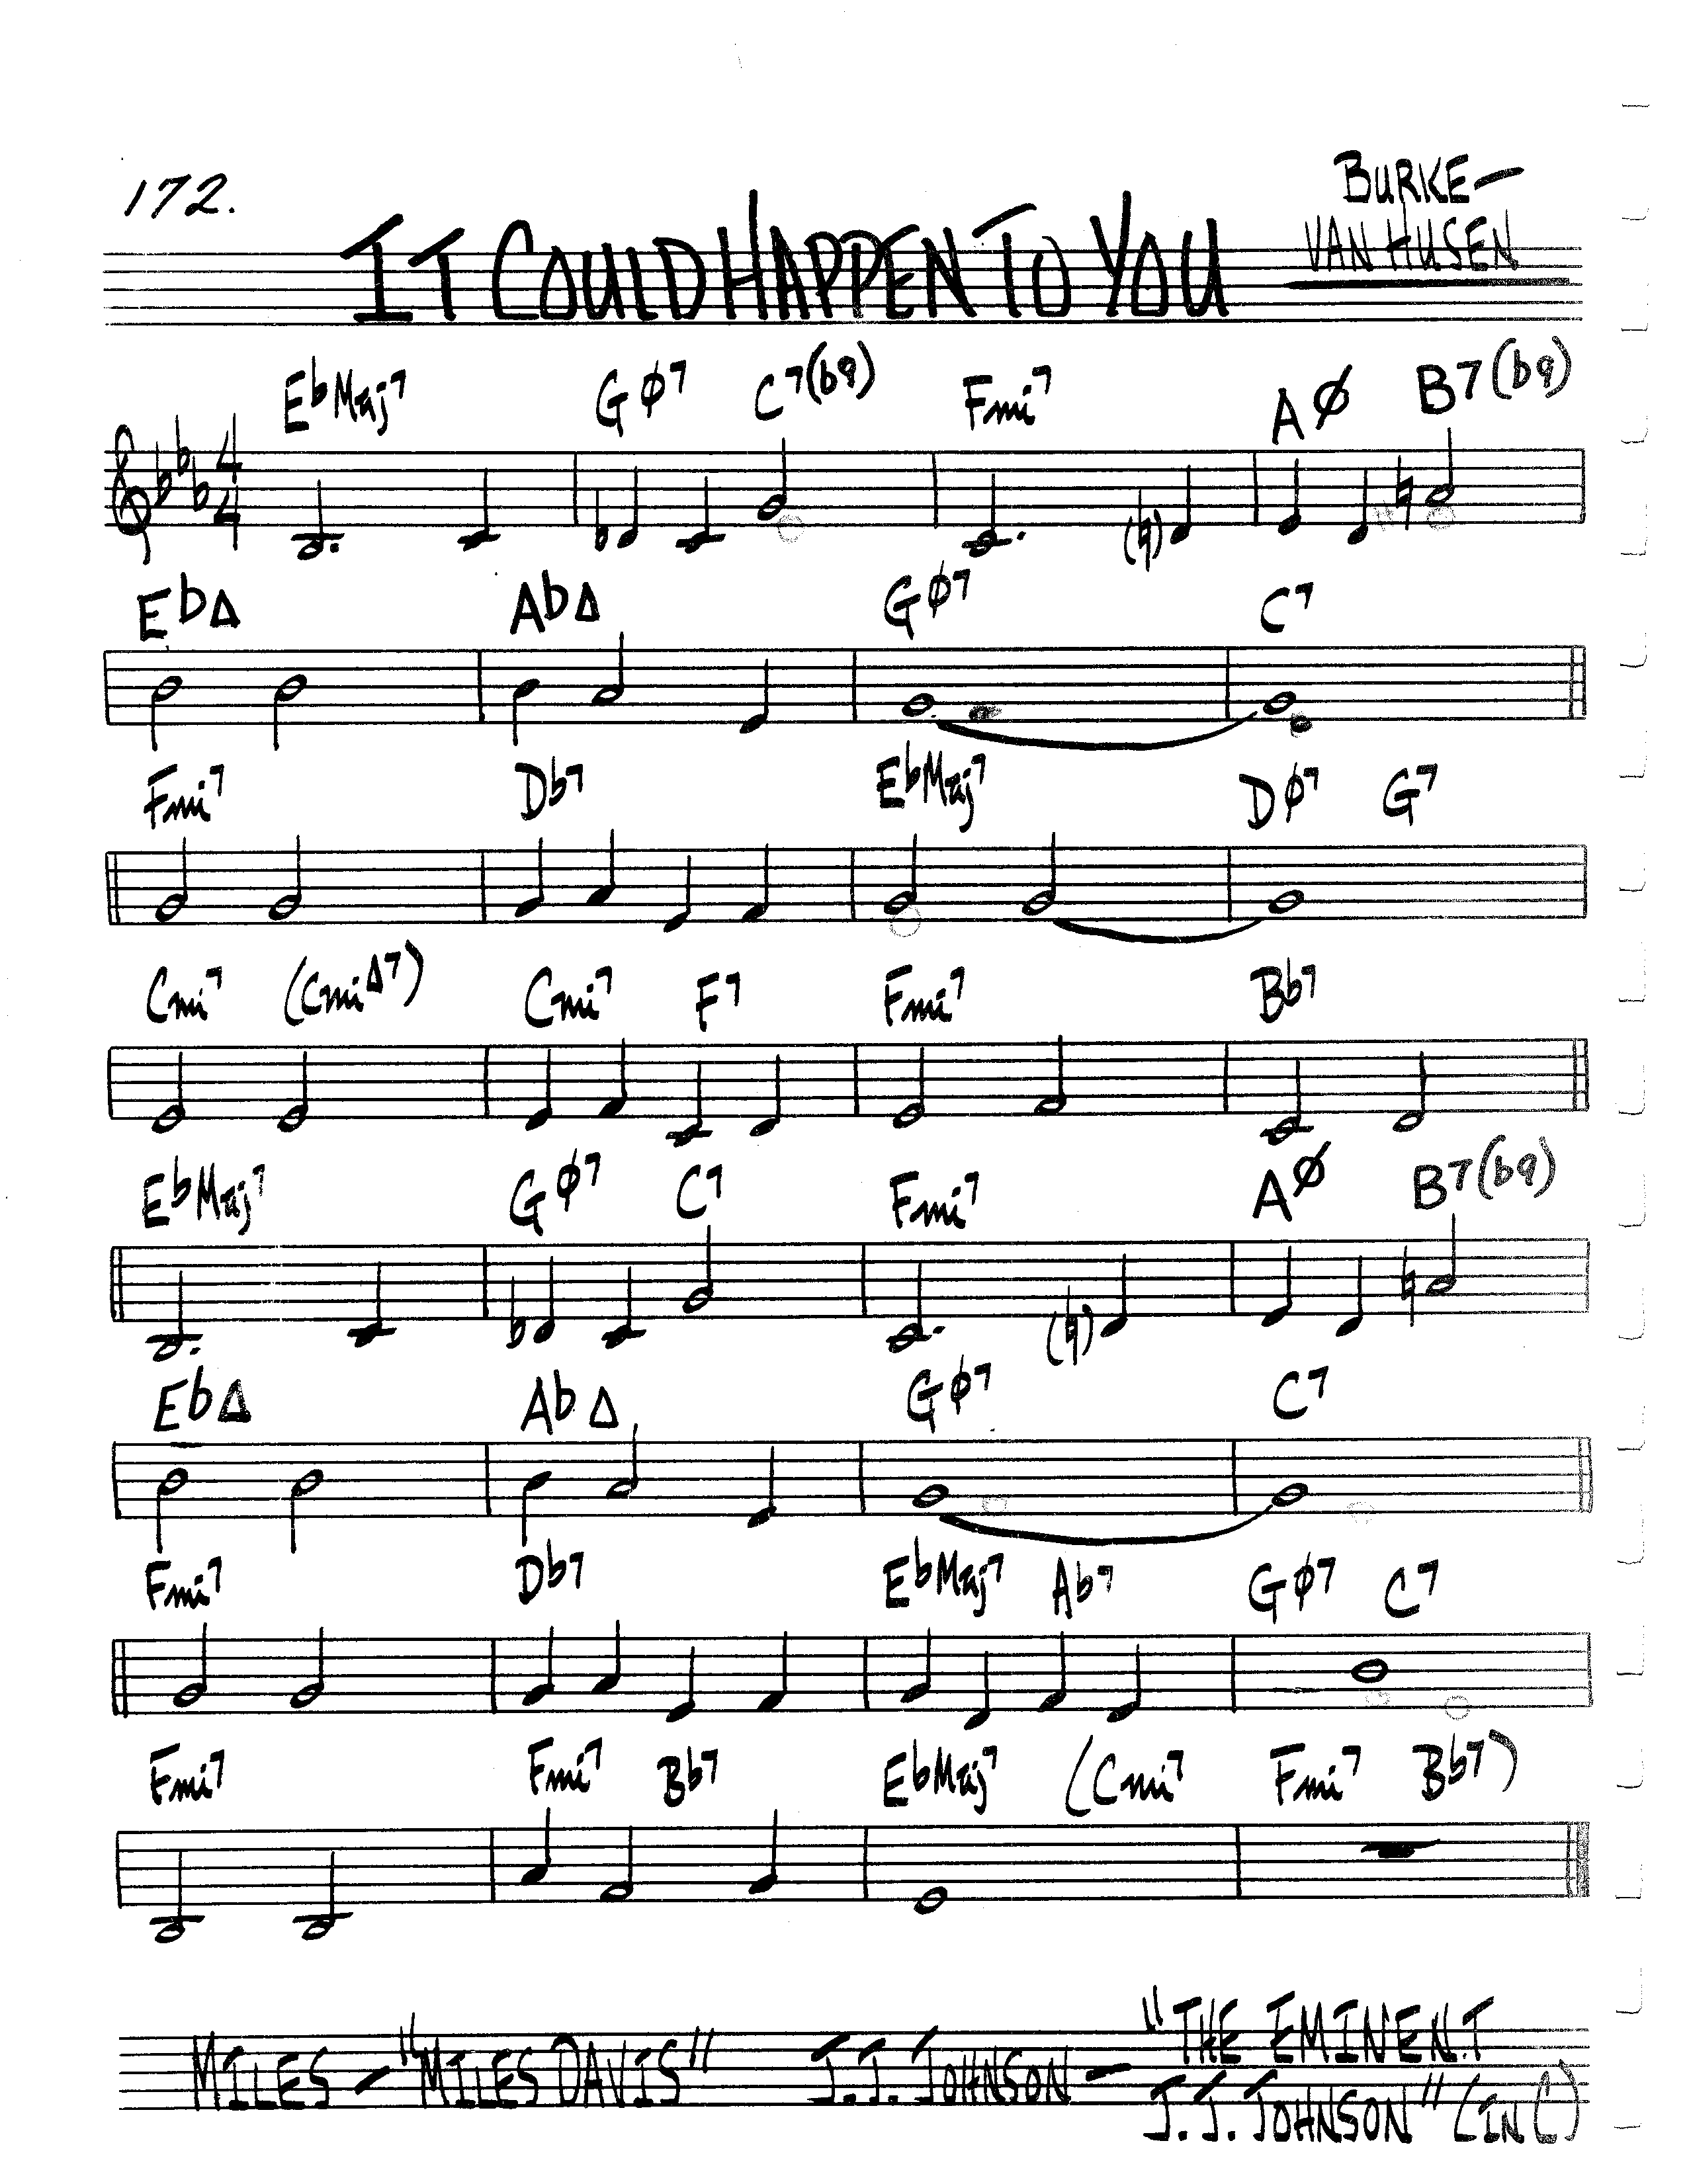 172.
BURKE—
VAN HUSEN
IT COULD HAPPEN TO YOU
EbMaj7 Gø7 C7(b9) Fmi7 Aø B7(b9)
4
4
EbΔ AbΔ Gø7 C7
Fmi7 Db7 EbMaj7 Dø7 G7
Cmi7 (CmiΔ7) Cmi7 F7 Fmi7 Bb7
EbMaj7 Gø7 C7 Fmi7 Aø B7(b9)
EbΔ AbΔ Gø7 C7
Fmi7 Db7 EbMaj7 Ab7 Gø7 C7
Fmi7 Fmi7 Bb7 EbMaj7 (Cmi7 Fmi7 Bb7)
MILES — "MILES DAVIS" J.J. JOHNSON — "THE EMINENT
J.J. JOHNSON" (IN C)